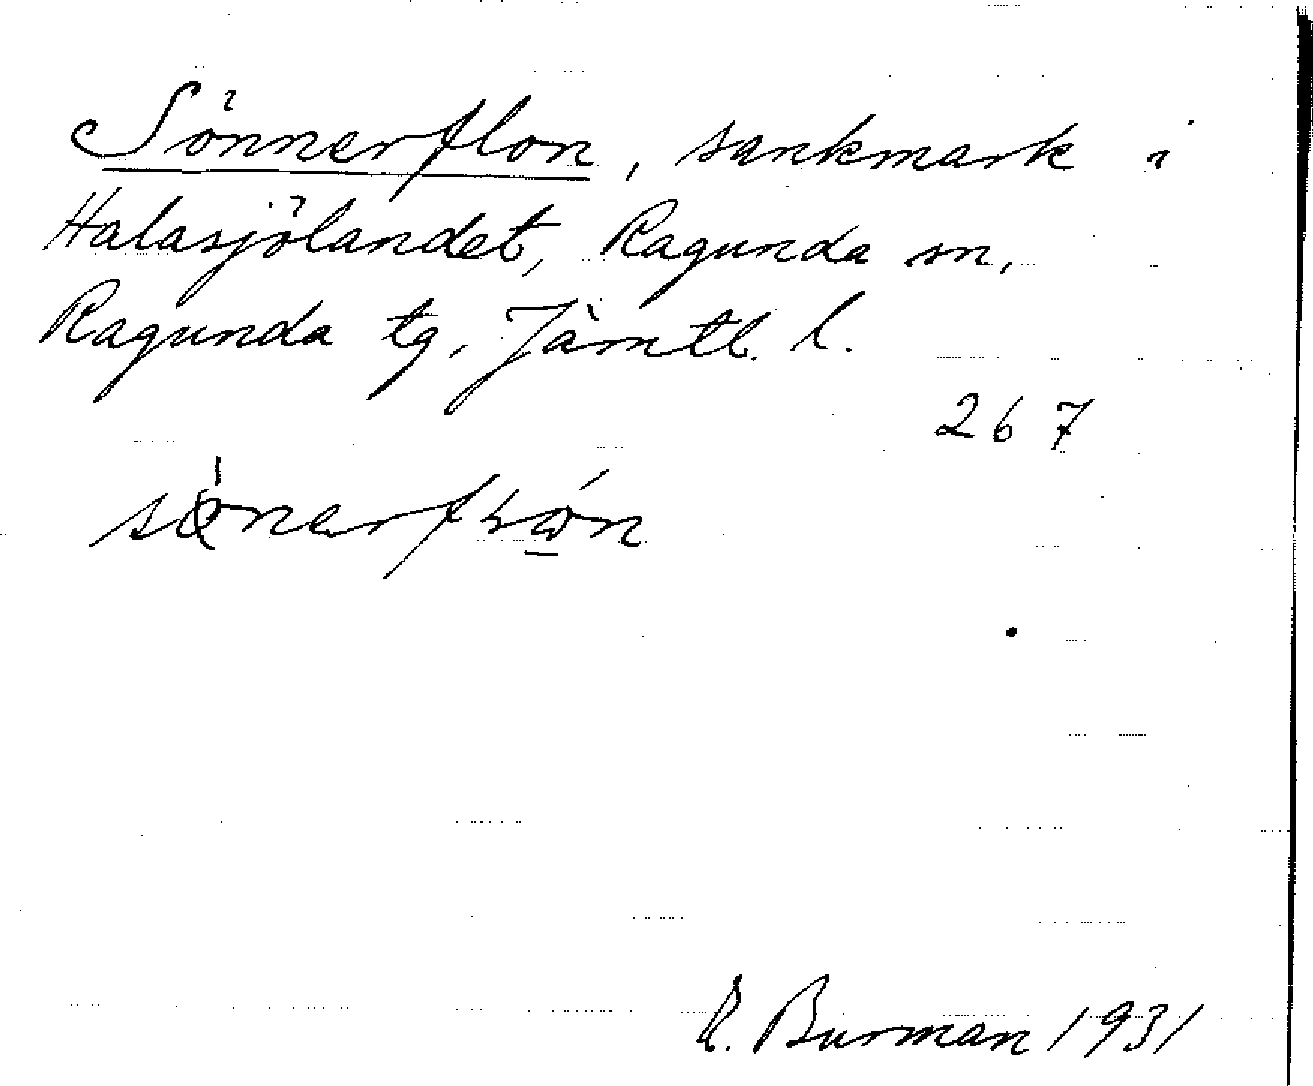 Sönnerflon, sankmark i
Halasjölandet, Ragunda sn,
Ragunda tg. Jämtl. l.
267
Burman 1931